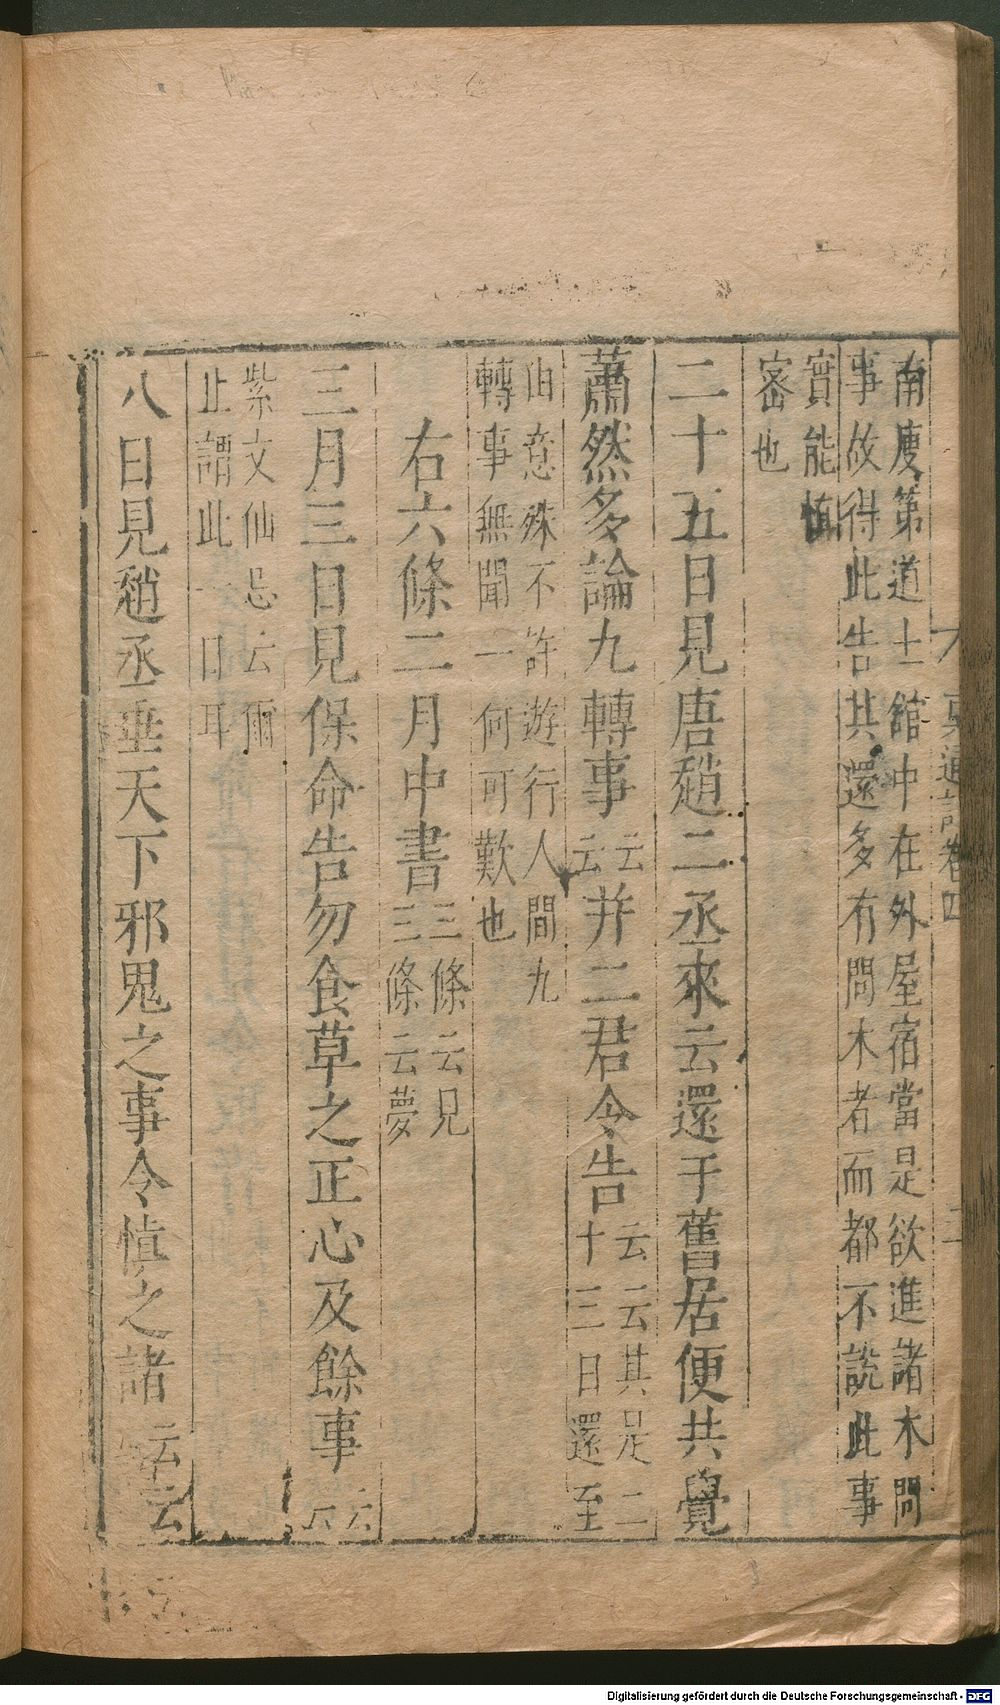 南廋第道士舘中在外屋宿當是欲進諸木問
事故得此告其還多有問木者而都不說此事
實能慎
密也
二十五日見唐趙二丞來云還于舊居便共覺
蕭然多論九轉事云云并二君令告云云其是二十三日還至
由意殊不許遊行人間九
轉事無聞一何可歎也
右六條二月中書三條云見三條云夢
三月三日見保命告勿食草之正心及餘事云云
紫文仙忌云爾
止謂此一日耳
八日見趙丞垂天下邪鬼之事令慎之諸云云
真通記卷四
Digitalisierung gefördert durch die Deutsche Forschungsgemeinschaft - DFG